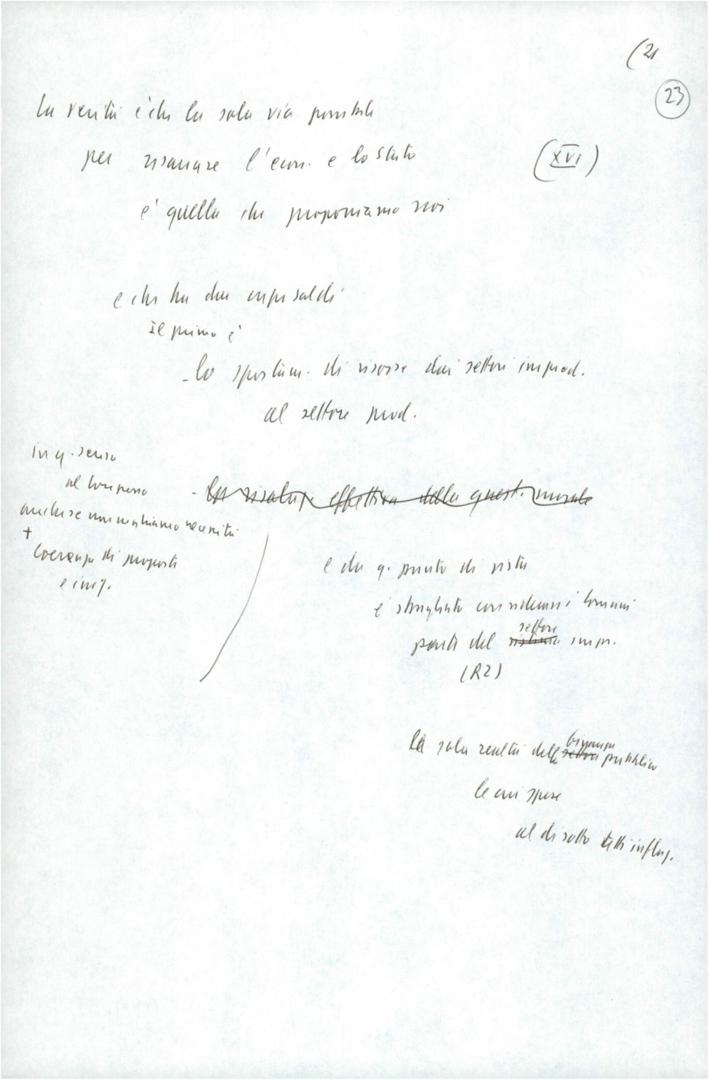 (21
23
La verità è che la sola via possibile
per risanare l'econ. e lo Stato
(XVI)
è quella che proponiamo noi
e che ha due capisaldi
Il primo è
- lo spostam. di risorse dai settori improd.
al settore prod.
in q. senso
al Congresso
anche se non
+
Coerenza di proposte
- la risoluz. effettiva della quest. morale
e da q. punto di vista
è sbagliato considerare i Comuni
parte del settore impr.
(R2)
La sola realtà della pubblica
le cui spese
al di sotto inflaz.